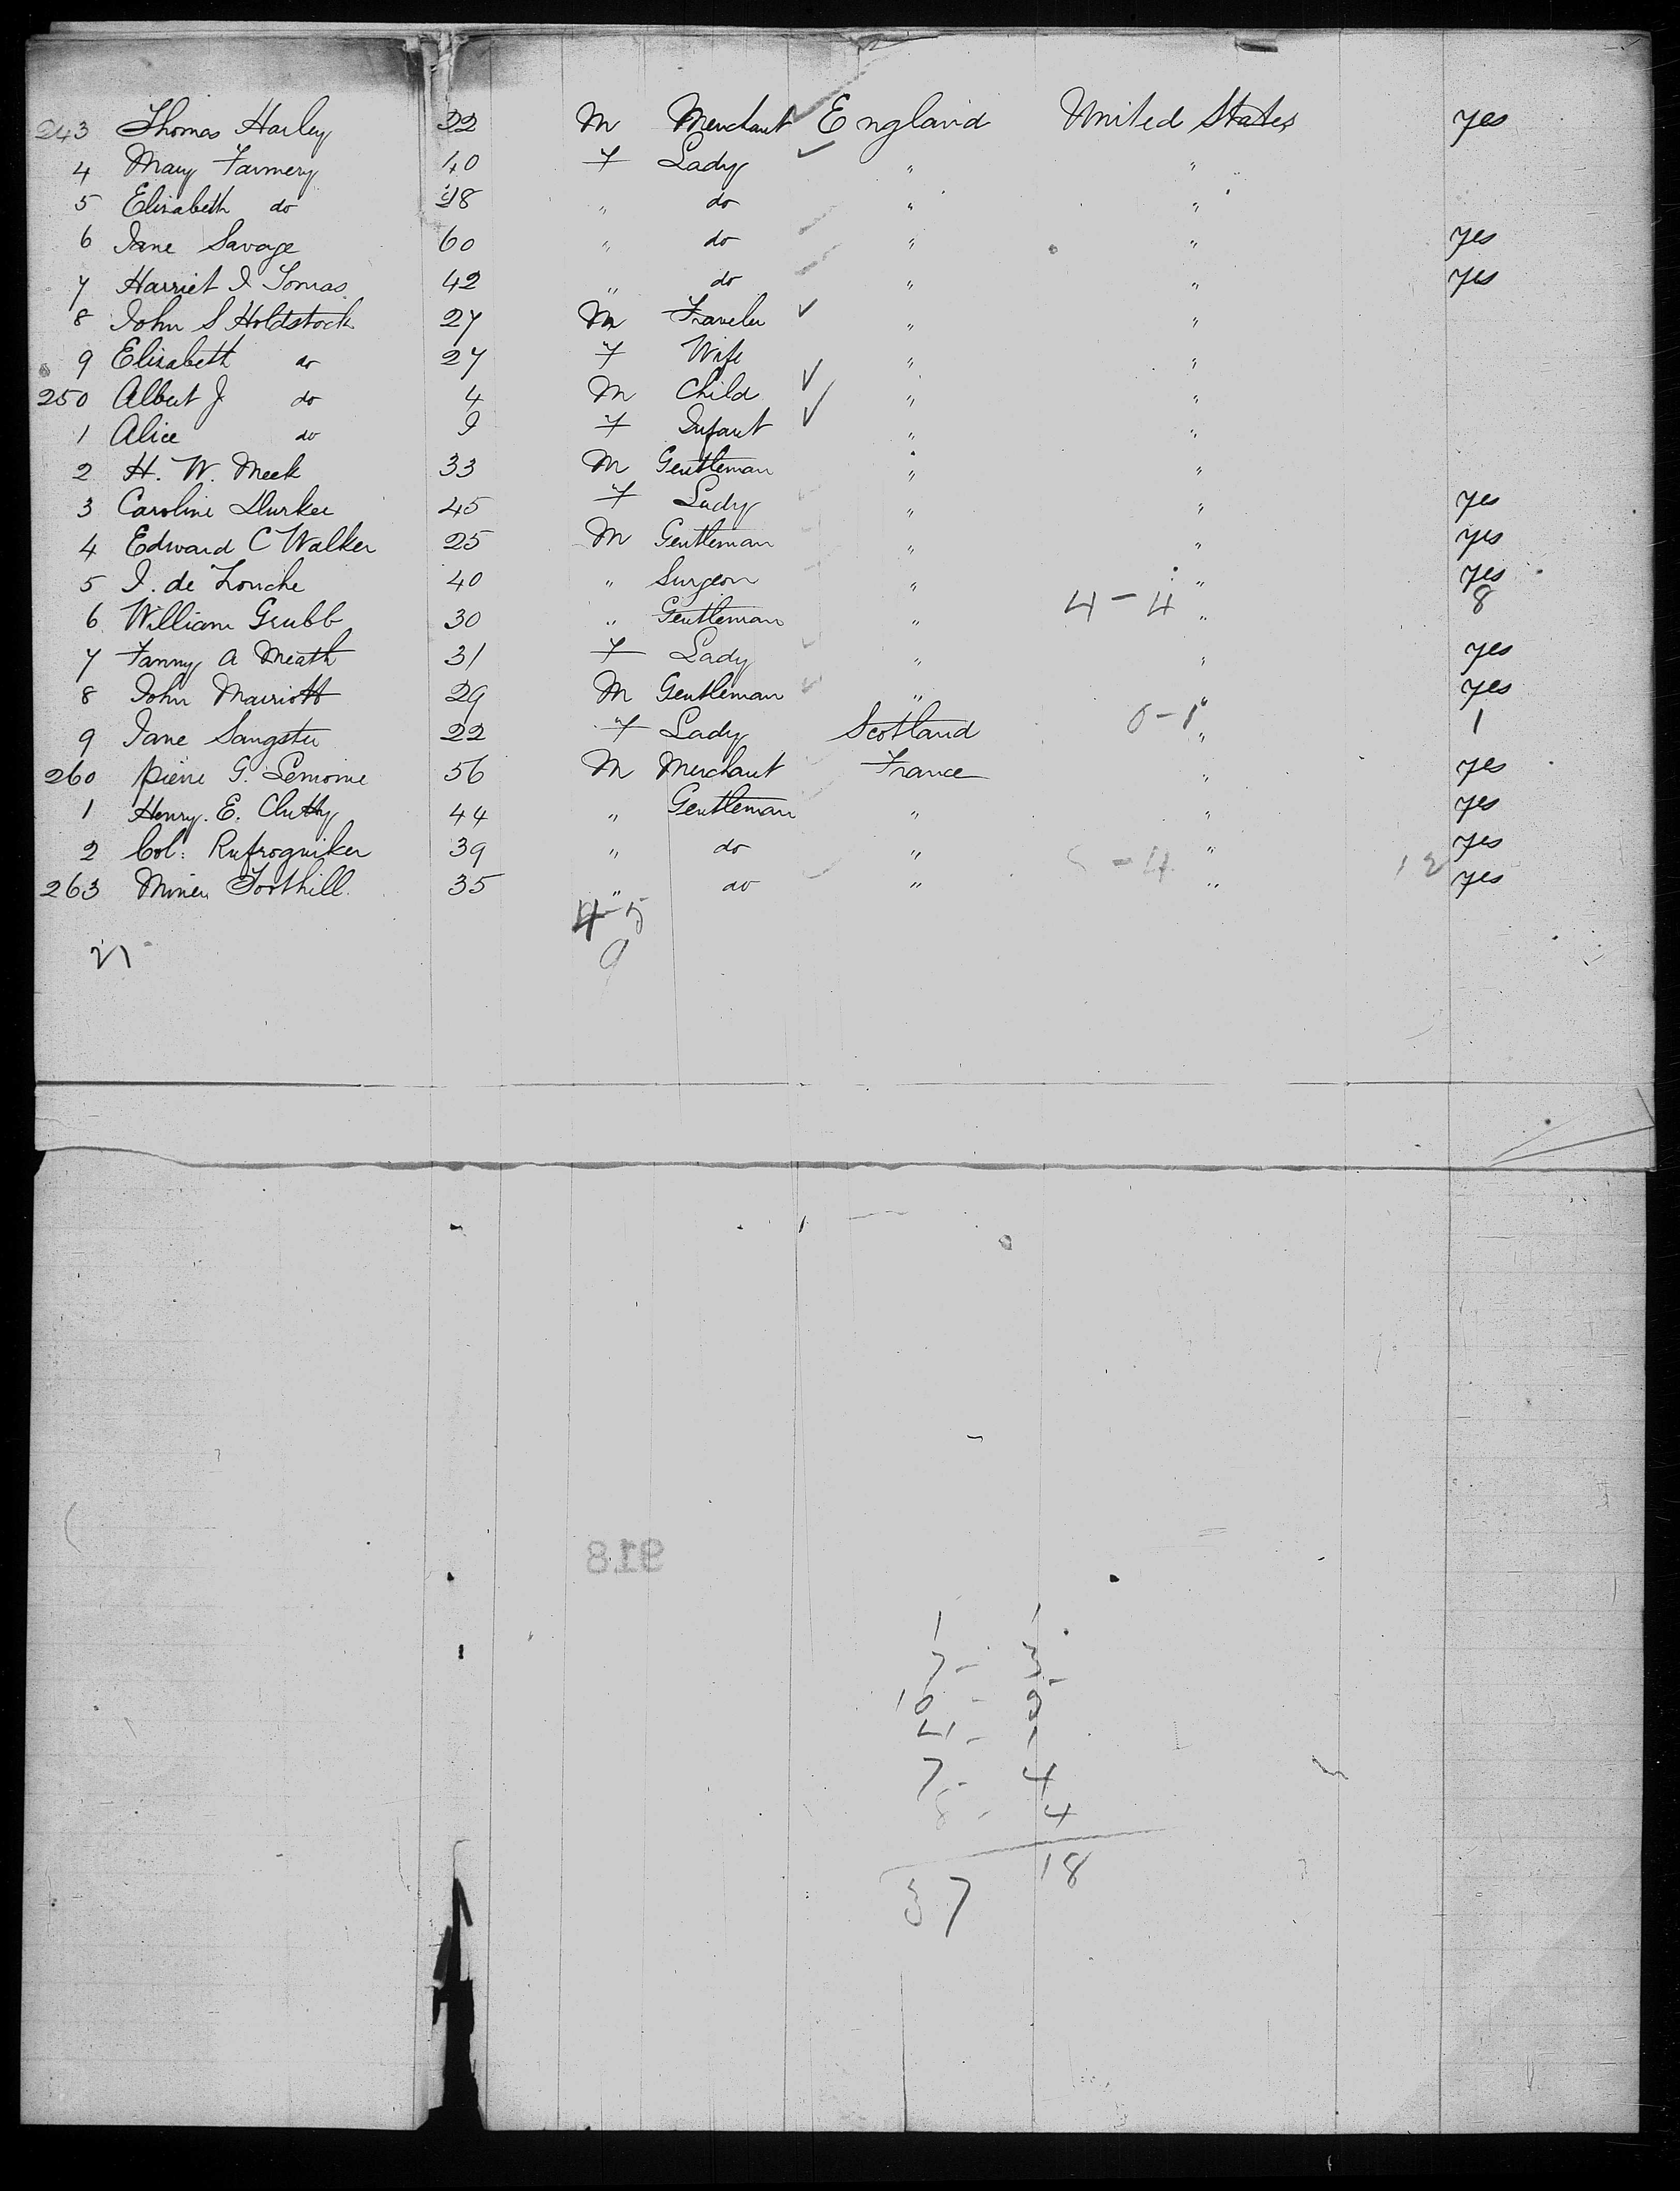 243 Thomas Harley 22 M Merchant England United States yes
4 Mary Farmery 40 F Lady " "
5 Elizabeth do 28 " do " "
6 Jane Savage 60 " do " " yes
7 Harriet I Tomas 42 " do " " yes
8 John S Holdstock 27 M Traveler " "
9 Elizabeth do 27 F Wife " "
250 Albert J do 4 M Child " "
1 Alice do F Infant " "
2 H. W. Meek 33 M Gentleman " "
3 Caroline Durker 45 F Lady " " yes
4 Edward C Walker 25 M Gentleman " " yes
5 I. de Zouche 40 " Surgeon " " yes
4-4 8
6 William Grubb 30 " Gentleman " "
7 Fanny A Meath 31 F Lady " " yes
8 John Marriott 29 M Gentleman " " yes
0-1
9 Jane Sangster 22 F Lady Scotland " 1
260 Pierre G. Lemoine 56 M Merchant France " yes
1 Henry. E. Chitty 44 " Gentleman " " yes
2 Col: 39 " do " " yes
-4 12
263 Miner Toothill 35 " do " " yes
4-5
21 9
918
1 1
7-
10 -
21 -
7- 4
8- 4
37 18